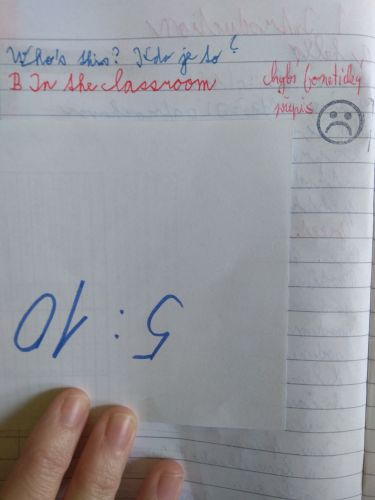 Who's this? Kdo je to?
B In the classroom
chybí fonetický
přepis
5 : 10